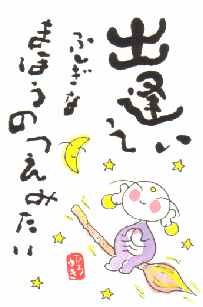 出逢いって
ふしぎな
まほうの
つえみたい
ひろゆき